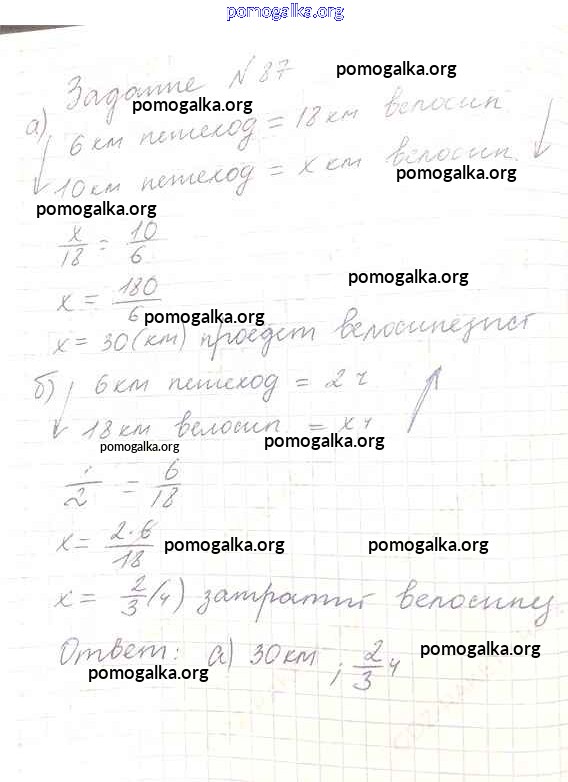 pomogalka.org
Задание №87 pomogalka.org
pomogalka.org
а) 6 км пешеход = 18 км велосип.
10 км пешеход = x км велосип.
pomogalka.org
pomogalka.org
x/18 = 10/6
pomogalka.org
x = 180/6
pomogalka.org
x = 30 (км) проедет велосипедист
б) 6 км пешеход = 2 ч
18 км велосип = x ч
pomogalka.org
pomogalka.org
/2 = 6/18
x = 2·6/18
pomogalka.org pomogalka.org
x = 2/3 (ч) затратит велосипед
Ответ: а) 30 км ; 2/3 ч
pomogalka.org
pomogalka.org